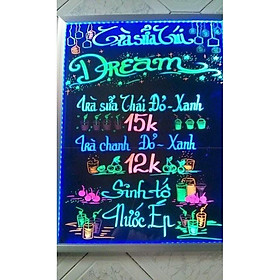 Trà sữa
Dream
Trà sữa Thái Đỏ - Xanh
15k
Trà chanh Đỏ - Xanh
12k
Sinh tố
Nước Ép